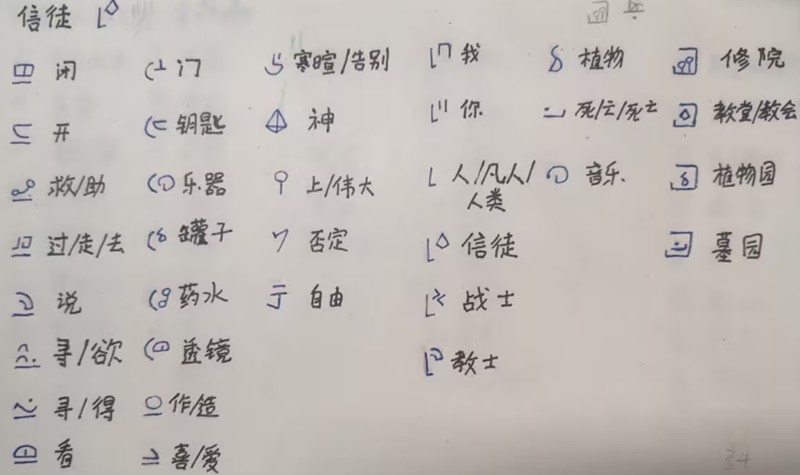 信徒
闭 门 寒暄/告别 我 植物 修院
开 钥匙 神 你 死/亡/死亡 教堂/教会
救/助 乐器 上/伟大 人/凡人/人类 音乐 植物园
过/走/去 罐子 否定 信徒 墓园
说 药水 自由 战士
寻/欲 透镜 教士
寻/得 作/造
看 喜/爱
34